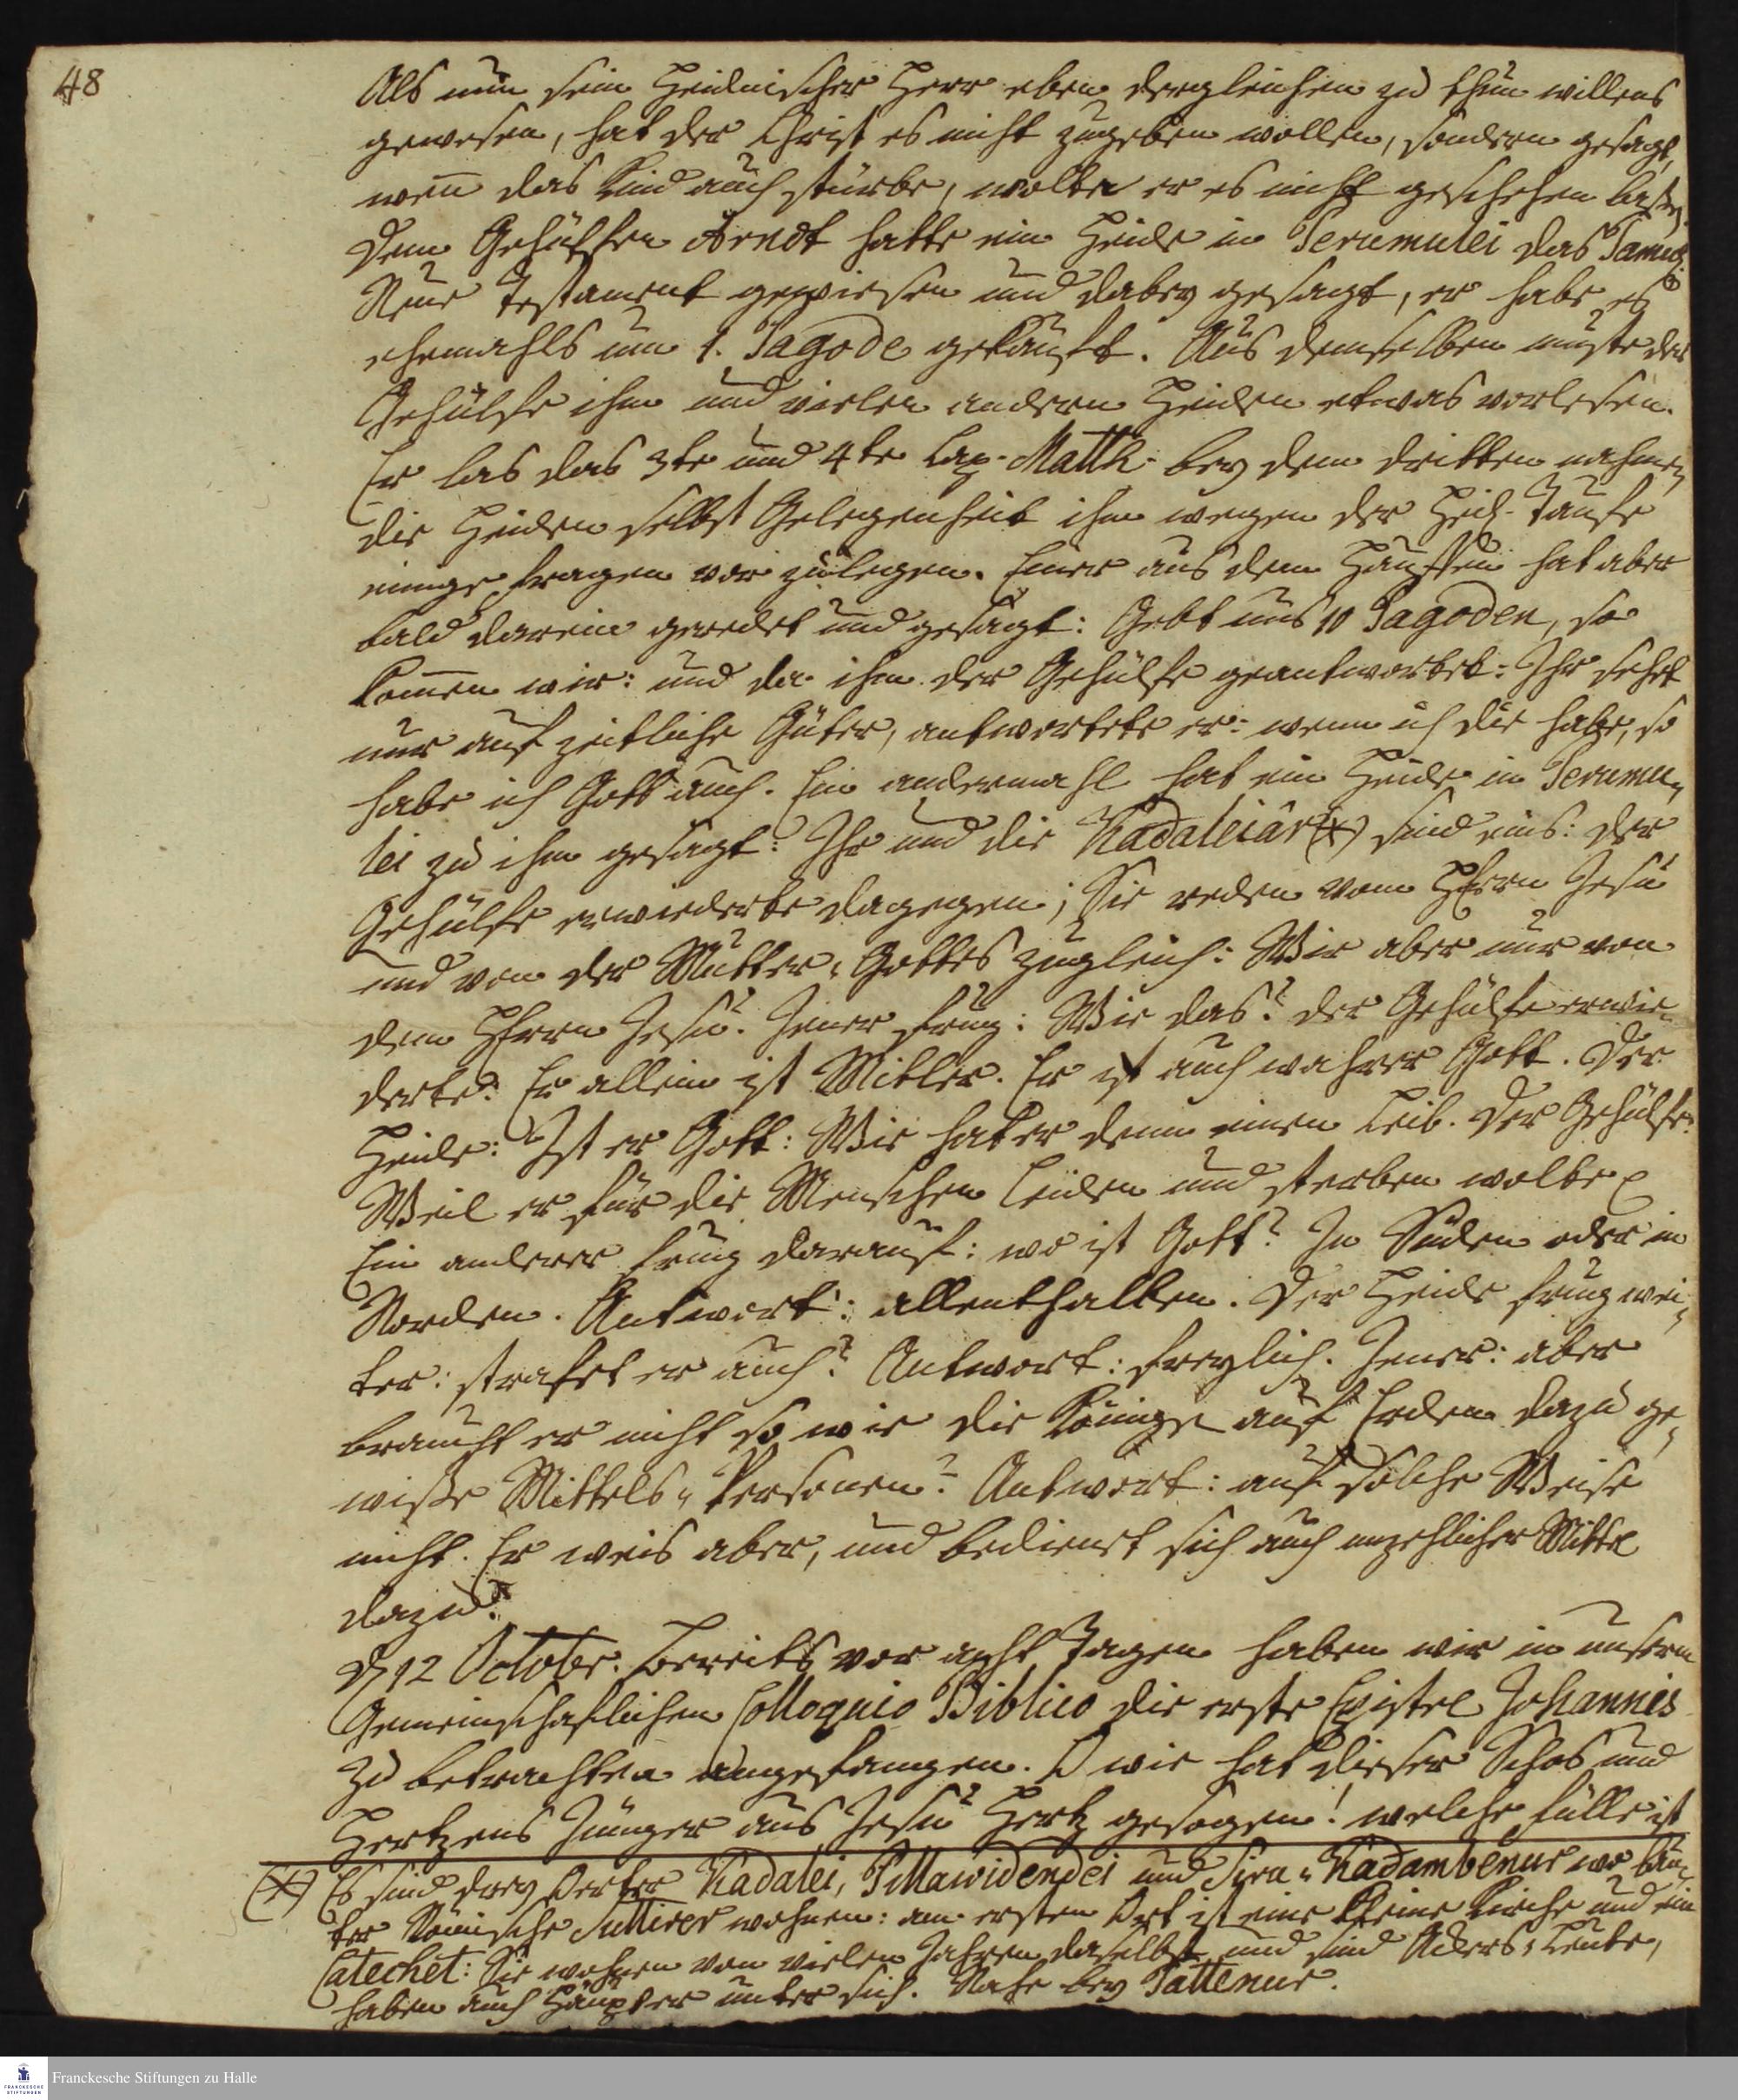 48
Als nun sein Heidnischer Herr eben dergleichen zu thun willens
gewesen, hat der Christ es nicht zugeben wollen, sondern gesagt,
weñ das Kind auch stürbe, wolte er es nicht geschehen laßen.
Dem Gehülfen Arndt hatte ein Heide in Perumulei das Tamul:
Neue Testament gewiesen und dabey gesagt, er habe es
ehemahls um 1. Pagode gekauft. Aus demselben muste der
Gehülfe ihm und vielen andern Heiden etwas vorlesen.
Er las das 3te und 4te Cap. Matth. bey dem dritten nahmen
die Heiden selbst Gelegenheit ihm wegen der Heil. Taufe
einige fragen vor zulegen. Einer aus dem Hauffen hat aber
bald darein geredet und gesagt: Gebt uns 10 Pagoden, so
kom̃en wir: und da ihm der Gehülfe geantwortet: Ihr sehet
nur auf zeitliche Güter, antwortete er: wenn ich die habe, so
habe ich Gott auch. Ein andermahl hat ein Heide in Perumu„
lei zu ihm gesagt: Ihr und die Kadaleiâr (x) sind eins: der
Gehülfe erwiederte dagegen; Sie reden vom HErrn Jesu
und von der Mutter„ Gottes zugleich: Wir aber nur von
dem HErrn Jesu. Jener frug: Wie das? der Gehülfe erwie„
derte: Er allein ist Mitler. Er ist auch wahrer Gott. Der
Heide: Ist er Gott: Wie hat er denn einen Leib. Der Gehülfe:
Weil er für die Menschen leiden und sterben wolte
Ein anderer frug darauf: wo ist Gott? In Süden oder in
Norden. Antwort: allenthalben. Der Heide frug wei„
ter: strafet er auch? Antwort: freylich. Jener: aber
braucht er nicht so wie die Könige auf Erden dazu ge„
wiße Mittels„ Personen? Antwort: auf solche Weise
nicht. Er weis aber, und bedienet sich auch unzehlicher Mittel
dazu.
D. 12 Octobr. Bereits vor acht Tagen haben wir in unserm
Gemeinschaftlichen Colloquio Biblico die erste Epistel Johannis
zu betrachten angefangen. O wie hat dieser Schos und
Hertzens Jünger aus Jesu Hertz gesogen! welche fülle ist
(x) Es sind drey Oerter Kadalei, Pillawidendei und Sira„ Kadambenur wo lau„
ter Römische Suttirer wohnen: am ersten Ort ist eine kleine Kirche und ein
Catechet: Sie wohnen von vielen Jahren daselbst und sind Ackers„ Leute,
haben auch Häupter unter sich. Nahe bey Pattenur.
FRANCKESCHE STIFTUNGEN
Franckesche Stiftungen zu Halle